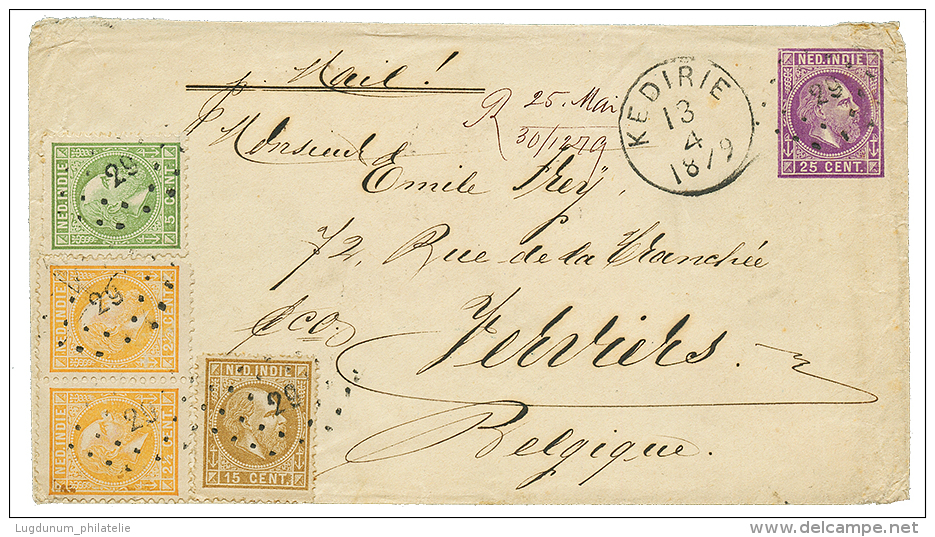 p. Mail!
R 25. Mai
30/1279
KEDIRIE
13
4
1879
NED. INDIE
29
25 CENT.
Monsieur
Emile Freÿ,
72, Rue de la Tranchée
fco.
Verviers
Belgique.
NED. INDIE
29
5 CENT.
NED. INDIE
29
2½ CENT.
NED. INDIE
29
2½ CENT.
NED. INDIE
29
15 CENT.
Lugdunum_philatelie
delcampe.net